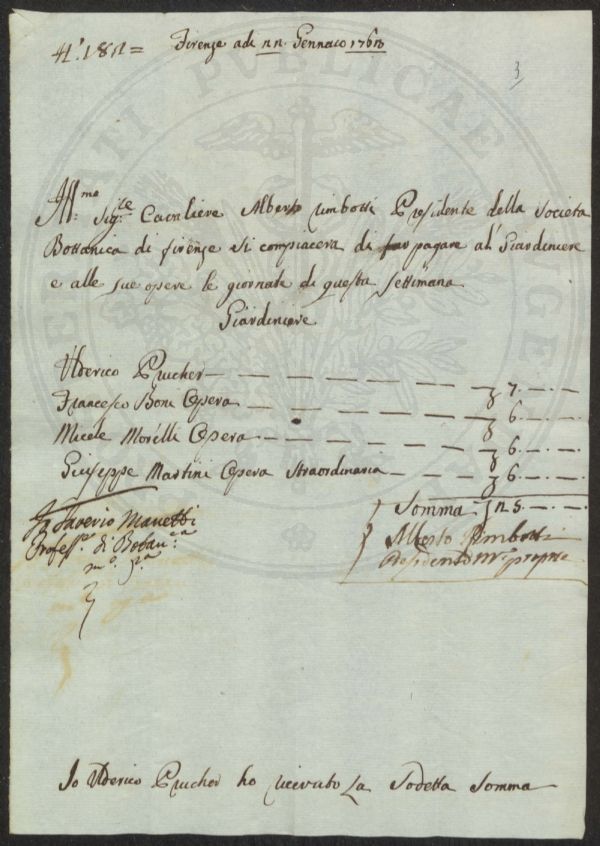 Firenze adi 22. Gennaio 1763
3
Ill.mo Sig.re Cavaliere Alberto Rimbotti Presidente della Societa
Bottanica di firenze si compiacera di far pagare al' Giardiniere
e alle sue opere le giornate di questa settimana
Giardiniere
Ulderico Prucher — — — — — — — 7. — . —
Francesco Boni Opera — — — — — — — 6. — . —
Micele Morelli Opera — — — — — — — 6. — . —
Giuseppe Martini Opera Straordinaria — — — — 6. — . —
Somma: 25. — . —
Saverio Manetti
Profess.e di Botan.ca
m.o p.a
Alberto Rimbotti
Presidente m.o propria
Io Ulderico Prucher ho ricevuto La Sodetta Somma